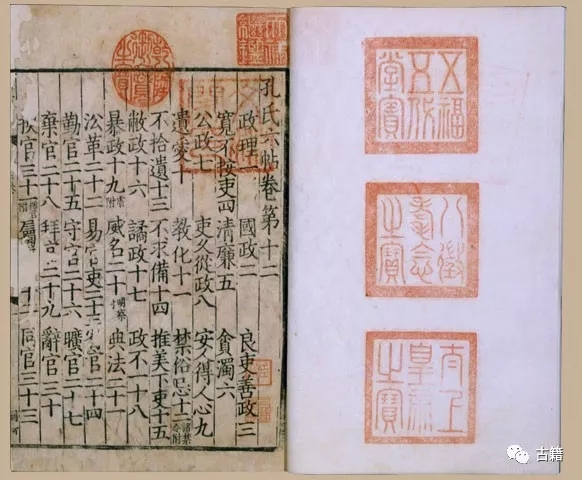 五福
五代
堂寶
八徵
耄念
之寶
太上
皇帝
之寶
乾隆
御覽
之寶
孔氏六帖卷第十二
政理一 國政二 良吏善政三
寬不按吏四 清廉五 貪濁六
公政七 吏久從政八 安人得人心九
遺愛十 教化十一 禁俗忌十二 諸禁令附
不拾遺十三 不求備十四 推美下吏十五
敝政十六 譎政十七 政不一十八
暴政十九 威名二十 典法二十一
沿革二十二 易官吏二十三 求官二十四
勤官二十五 守官二十六 曠官二十七
棄官二十八 拜官二十九 辭官三十
官三十 同官三十三
古籍